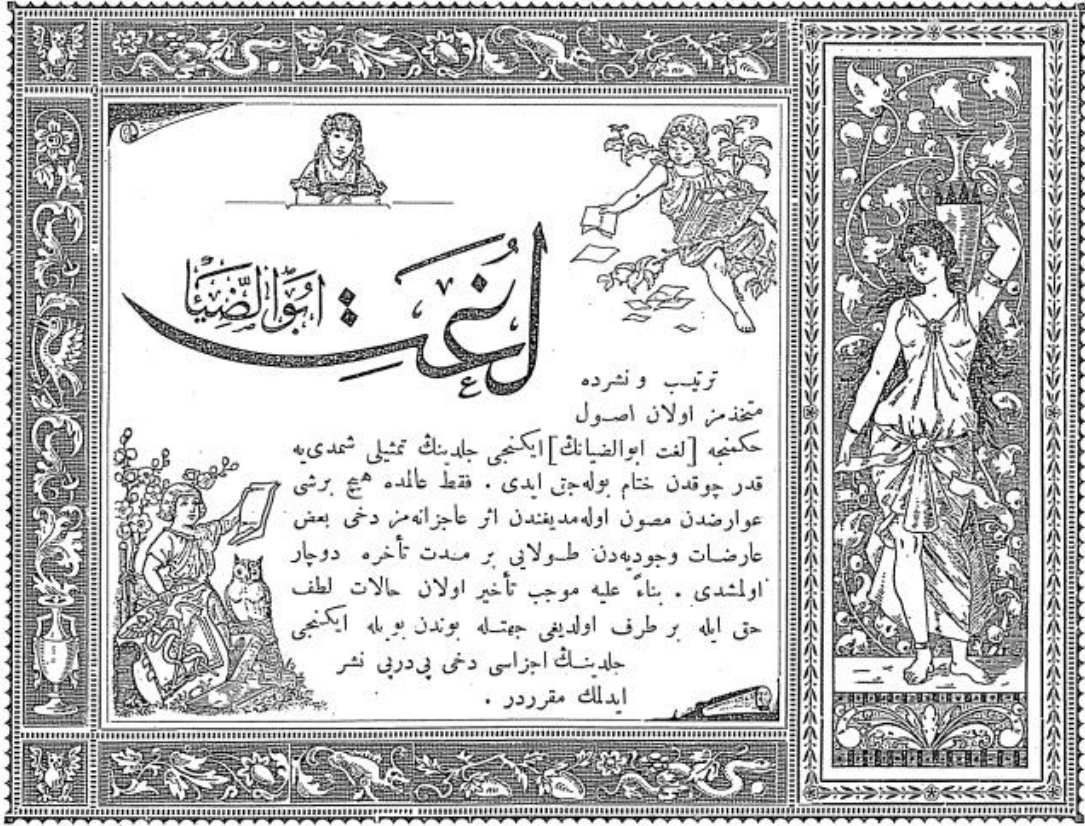 لُغَتِ اَبُو الضِّيَا
ترتيب و نشرده
متخذمز اولان اصول
حكمنجه [لغت ابوالضيانك] ايكنجى جلدينڭ تمثيلى شمدى‌يه
قدر چوقدن ختام بوله‌جق ايدى . فقط عالمده هيچ برشى
عوارضدن مصون اوله‌مديغندن اثر عاجزانه‌مز دخى بعض
عارضات وجوديه‌دن طولايى بر مدت تأخره دوچار
اولمشدى . بناءً عليه موجب تأخير اولان حالات لطف
حق ايله بر طرف اولديغى جهتله بوندن بويله ايكنجى
جلدينڭ اجزاسى دخى پى‌درپى نشر
ايدلمك مقرردر .